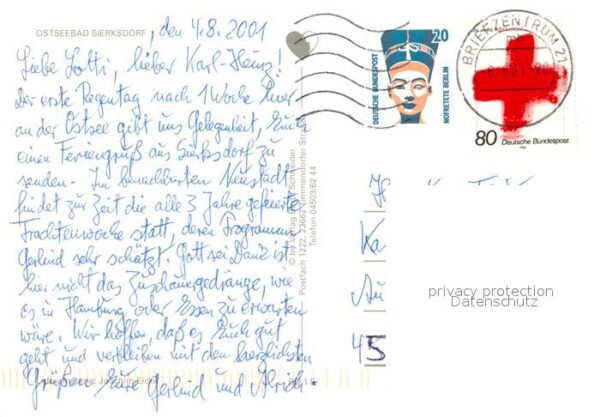 OSTSEEBAD SIERKSDORF, den 4.8.2001
Liebe Lotti, lieber Karl-Heinz!
Der erste Regentag nach 1 Woche hier
an der Ostsee gibt uns Gelegenheit, Euch
einen Feriengruß aus Sierksdorf zu
senden. - Im benachbarten Neustadt
findet zur Zeit die alle 3 Jahre gefeierte
Trachtenwoche statt, deren Programm
Gerlind sehr schätzt. Gott sei Dank ist
hier nicht das Zuschauergedränge, wie
es in Hamburg oder Essen zu erwarten
wäre. Wir hoffen, daß es Euch gut
geht und verbleiben mit den herzlichsten
Grüßen Eure Gerlind und
Postfach 1222, 23662 Timmendorfer
Telefon 04503/62 44
20
DEUTSCHE BUNDESPOST
NOFRETETE BERLIN
BRIEFZENTRUM 21
80 Deutsche Bundespost
Ka
Au
45
privacy protection
Datenschutz